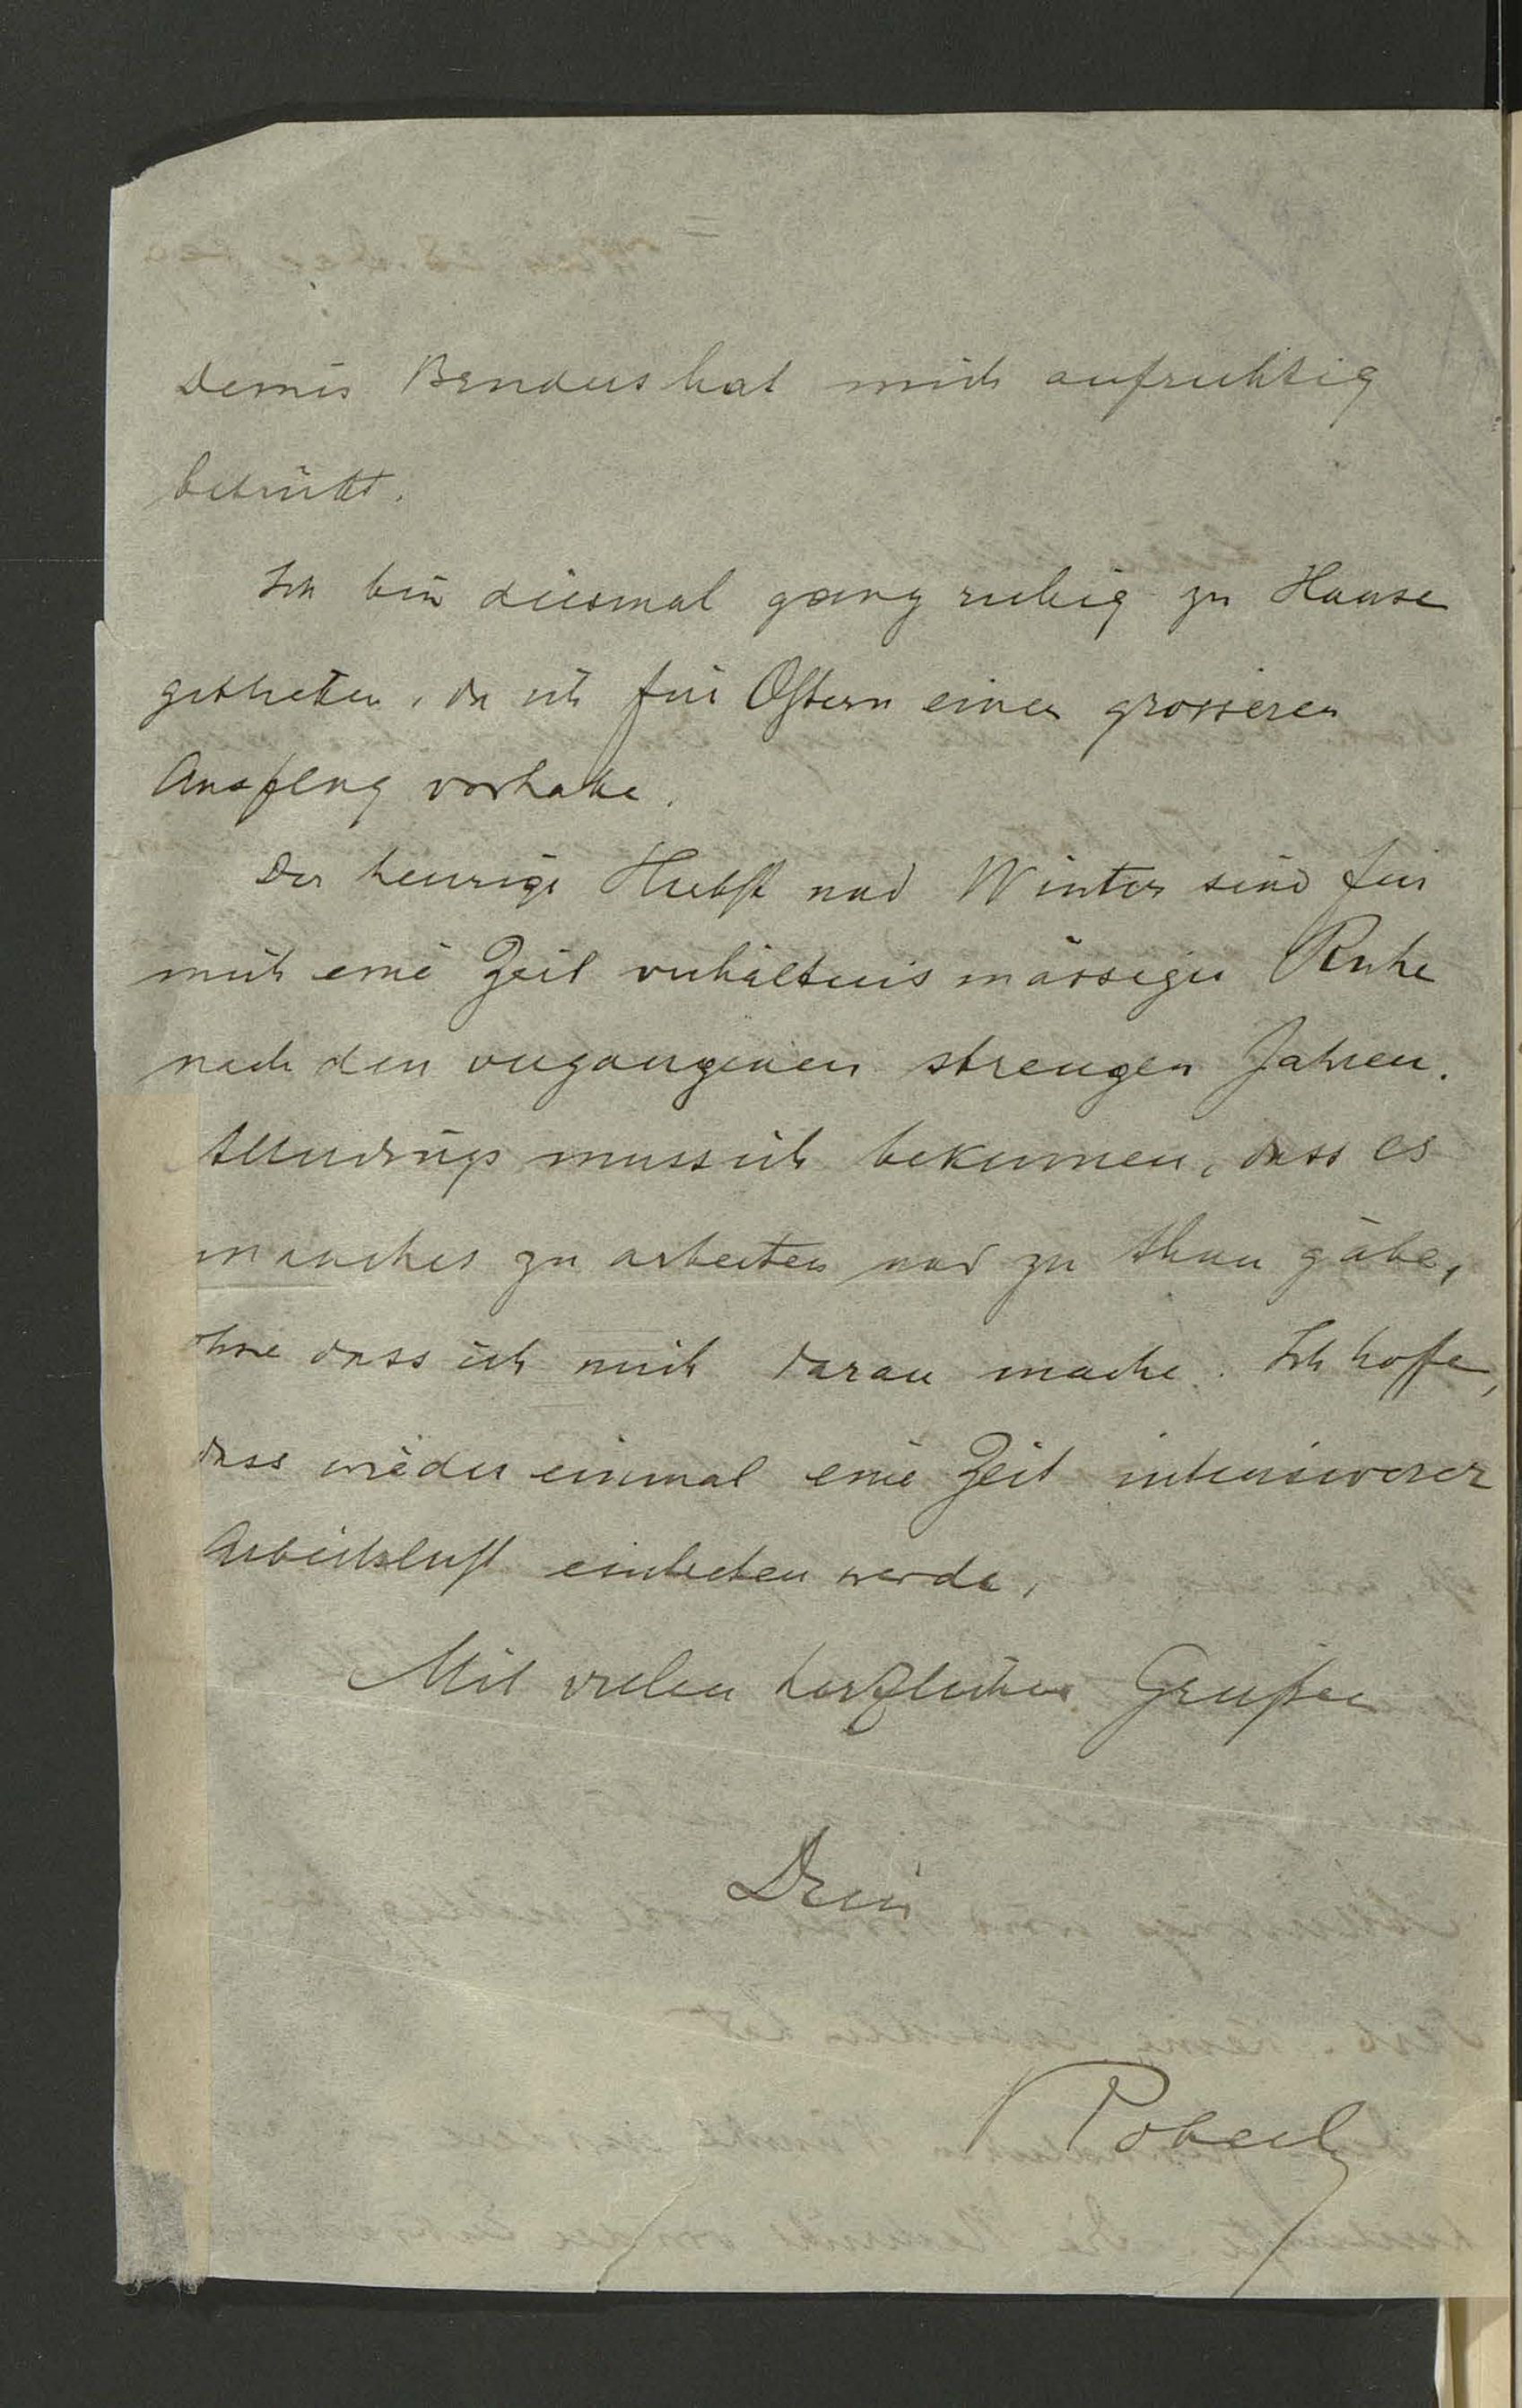 Deines Bruders hat mich aufrichtig
betrübt.
Ich bin diesmal ganz ruhig zu Hause
geblieben, da ich für Ostern einen grösseren
Ausflug vorhabe.
Der heurige Herbst und Winter sind für
mich eine Zeit verhältnismässiger Ruhe
nach den vergangenen strengen Jahren.
Allerdings muss ich bekennen, dass es
manches zu arbeiten und zu thun gäbe,
ohne dass ich mich daran mache. Ich hoffe,
dass wieder einmal eine Zeit intensiverer
Arbeitslust eintreten werde.
Mit vielen herzlichen Grüßen
Dein
Robert